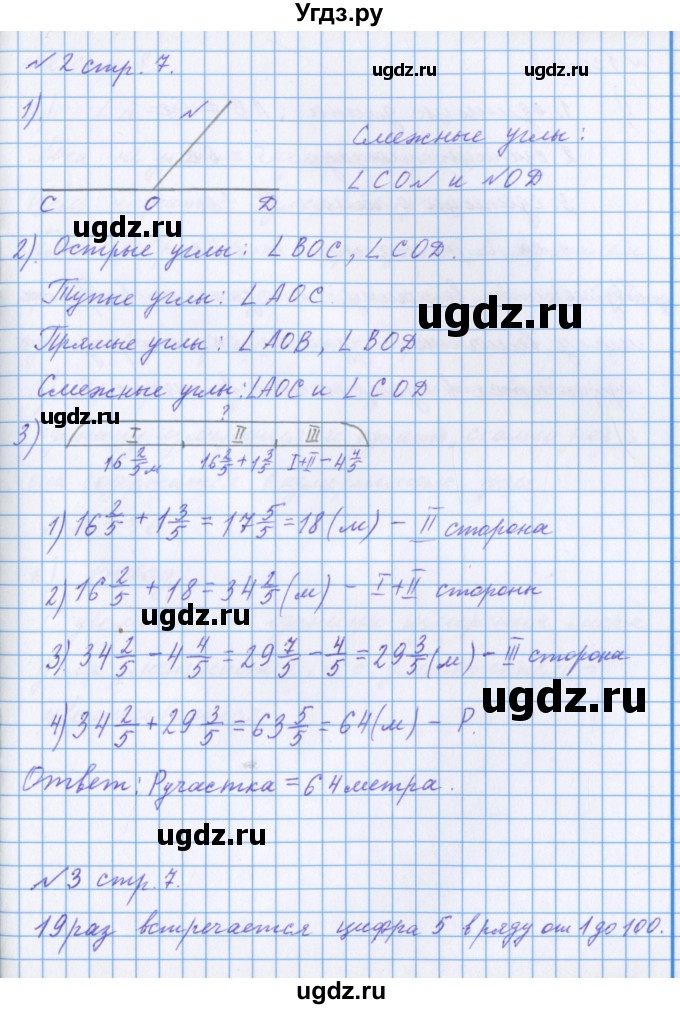 Угдз.ру
№ 2 стр. 7.
ugdz.ru ugdz.ru
1) N
Смежные углы:
∠CON и NOD
C O D
ugdz.ru
2). Острые углы: ∠BOC, ∠COD.
Тупые углы: ∠AOC.
ugdz.ru
Прямые углы: ∠AOB, ∠BOD
Смежные углы: ∠AOC и ∠COD
ugdz.ru
?
3) I II III
16 2/5 м 16 2/5 + 1 3/5 I+II − 4 4/5
1) 16 2/5 + 1 3/5 = 17 5/5 = 18 (м) − II сторона
2) 16 2/5 + 18 = 34 2/5 (м) − I+II стороны
ugdz.ru
3) 34 2/5 − 4 4/5 = 29 7/5 − 4/5 = 29 3/5 (м) − III сторона
ugdz.ru
4) 34 2/5 + 29 3/5 = 63 5/5 = 64 (м) − P.
Ответ: P участка = 64 метра.
ugdz.ru
№ 3 стр. 7.
ugdz.ru
19 раз встречается цифра 5 в ряду от 1 до 100.
ugdz.ru